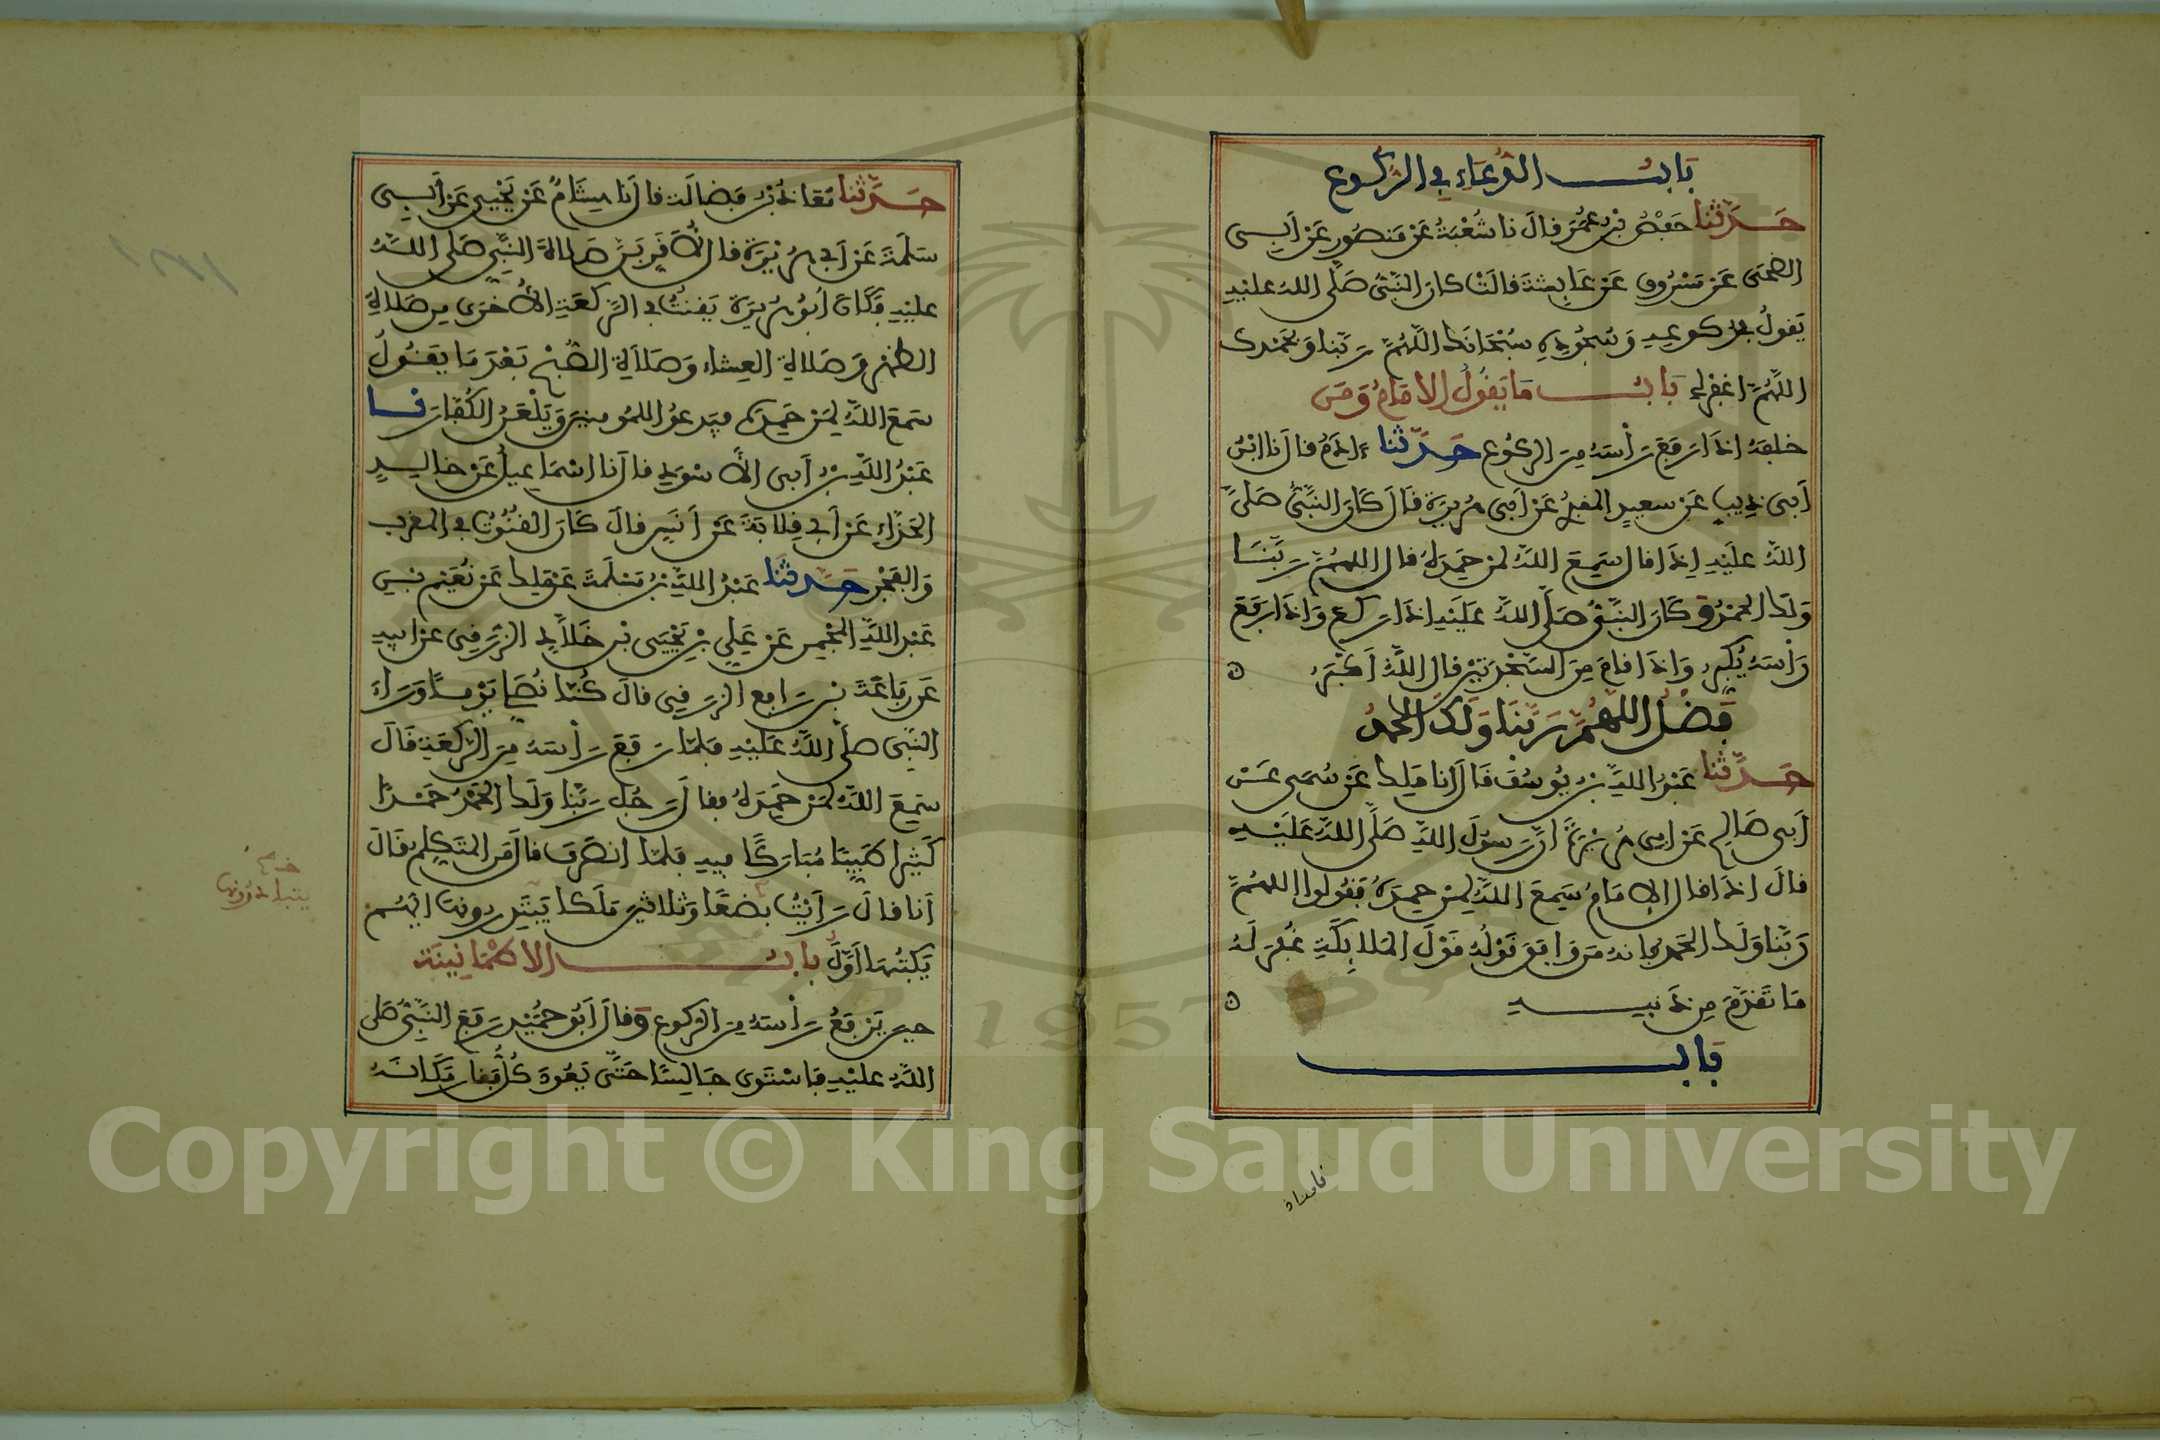 باب الدعاء في الركوع
حَدَّثنا حفص بن عمر قال نا شُعْبَةُ عَن مَنصُورٍ عَن أَبِي
الضحى عَن مَسْرُوقٍ عَن عَايِشَةَ قالَتْ كان النَّبيُّ صَلَّى اللهُ عليْهِ
يَقولُ في ركوعِهِ وَسُجُودِهِ سُبْحَانَكَ اللَّهُمَّ رَبَّنا وَبِحَمْدِكَ
اللَّهُمَّ اغْفِرْ لِي بَابُ مَا يَقُولُ الإمَامُ وَمَن
خلفَهُ إذَا رَفَعَ رَأْسَهُ مِنَ الركُوع حَدَّثنا ءادَمُ قال نا ابْنُ
أَبِي ذِيبٍ عَن سعيدٍ المقبُرِيِّ عَن أَبِي هُرَيرَةَ قَالَ كَانَ النَّبيُّ صَلَّى
اللهُ عليْهِ إِذَا قال سَمِعَ اللهُ لِمَن حَمِدَهُ قال اللهُمَّ رَبَّنَا
وَلَكَ الحَمْدُ وَكَانَ النَّبيُّ صَلَّى اللهُ عَلَيْهِ إذَا رَكَعَ وَإِذَا رَفَعَ
رَأْسَهُ يُكَبِّرُ وَإذَا قامَ مِنَ السَّجْدَتَيْنِ قال اللَّهُ أَكْبَرُ
فَضْلُ اللَّهُمَّ رَبَّنَا وَلَكَ الحَمْدُ
حَدَّثنا عَبْدُ اللهِ بنُ يُوسُفَ قَالَ انا مَلِك عَن سُمَيٍّ عَنْ
أَبِي صَالحٍ عَن أَبِي هُرَيْرَةَ أَنَّ رَسُولَ اللهِ صَلَّى اللهُ عَلَيْهِ
قالَ إذَا قال الإمَامُ سَمِعَ اللهُ لِمَنْ حَمِدَهُ فقُولُوا اللهُمَّ
رَبَّنا وَلَكَ الحَمْدُ فإنه مَن وَافَقَ قَوْلُهُ قَوْلَ المَلايِكَةِ غُفِرَ لَهُ
مَا تَقَدَّمَ مِن ذَنبِهِ
بَابٌ
نا معاذ
حَدَّثنا مُعَاذُ بْنُ فَضالَة قالَ نا هِشَامٌ عَن يَحْيَى عَن أَبِي
سَلَمَةَ عَن أَبي هُرَيْرَةَ قال لأُقَرِّبَنَّ صَلاةَ النَّبِيِّ صَلى اللهُ
عليْهِ فَكَانَ أَبُو هُرَيْرَةَ يَقنُتُ في الرَّكعَةِ الأُخْرَى مِن صَلاةِ
الظهْرِ وَصَلاةِ العِشاءِ وَصَلاةِ الصُّبْحِ بَعْدَ مَا يَقُولُ
سَمِعَ اللهُ لِمَنْ حَمِدَهُ فيدعُو للمُومنِينَ وَيَلْعَنُ الكُفَّارَ نا
عَبْدُ اللهِ بنُ أَبِي الأَسْوَدِ قال نا اسْمَاعِيلُ عَن خالِدٍ
الحَذَّاءِ عَن أَبي قِلابَةَ عَن أَنَسٍ قالَ كَانَ القُنُوتُ في المَغرِب
وَالفَجْرِ حَدَّثَنا عَبْدُ اللهِ بنُ مَسْلَمَةَ عَن مَلِكٍ عَن نُعَيْمِ بنِ
عَبْدِ اللهِ المُجْمِرِ عَن عَلِيِّ بْنِ يَحْيَى بْنِ خَلَّادٍ الزُّرَقِيِّ عَن أبيهِ
عَن رِفاعَةَ بْنِ رَافِعٍ الزُّرَقِيِّ قالَ كُنَّا نُصَلِّي يَوْمًا وَرَاءَ
النَّبيِّ صَلَّى اللهُ عَلَيْهِ فَلَمَّا رَفَعَ رَأْسَهُ مِنَ الرَّكْعَةِ قَالَ
سَمِعَ اللهُ لِمَنْ حَمِدَهُ فقالَ رَجُلٌ رَبَّنَا وَلَكَ الحَمْدُ حَمْدًا
كَثِيرًا طَيِّبًا مُبَارَكًا فيهِ فَلَمَّا انْصَرَفَ قالَ مَنِ المُتَكَلِّمُ قالَ
أنا قالَ رَأَيْتُ بِضْعًا وَثَلاثينَ مَلَكًا يَبْتَدِرُونَهَا أيّهُمْ
يَكْتُبُهَا أَوَّلُ بابُ الاطمَانِينَةِ
حينَ يَرْفَعُ رَأْسَهُ مِنَ الرُّكُوعِ وَقالَ أَبُو حُمَيْدٍ رَفَعَ النَّبيُّ صَلى
اللهُ عليْهِ فاسْتَوَى جَالِسًا حَتَّى يَعُودَ كُلُّ فَقارٍ مَكَانَهُ
Copyright © King Saud University
1957